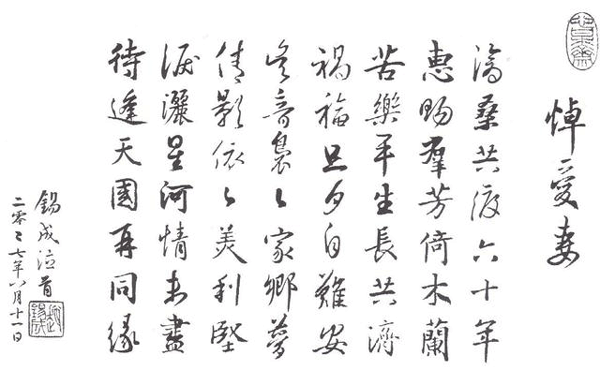 悼愛妻
滄桑共渡六十年
惠賜羣芳倚木蘭
苦樂平生長共濟
禍福旦夕自難安
音裊々家鄉夢
倩影依々美利堅
淚灑星河情未盡
待逢天國再同緣
錫成泣首
二零々七年六月十一日